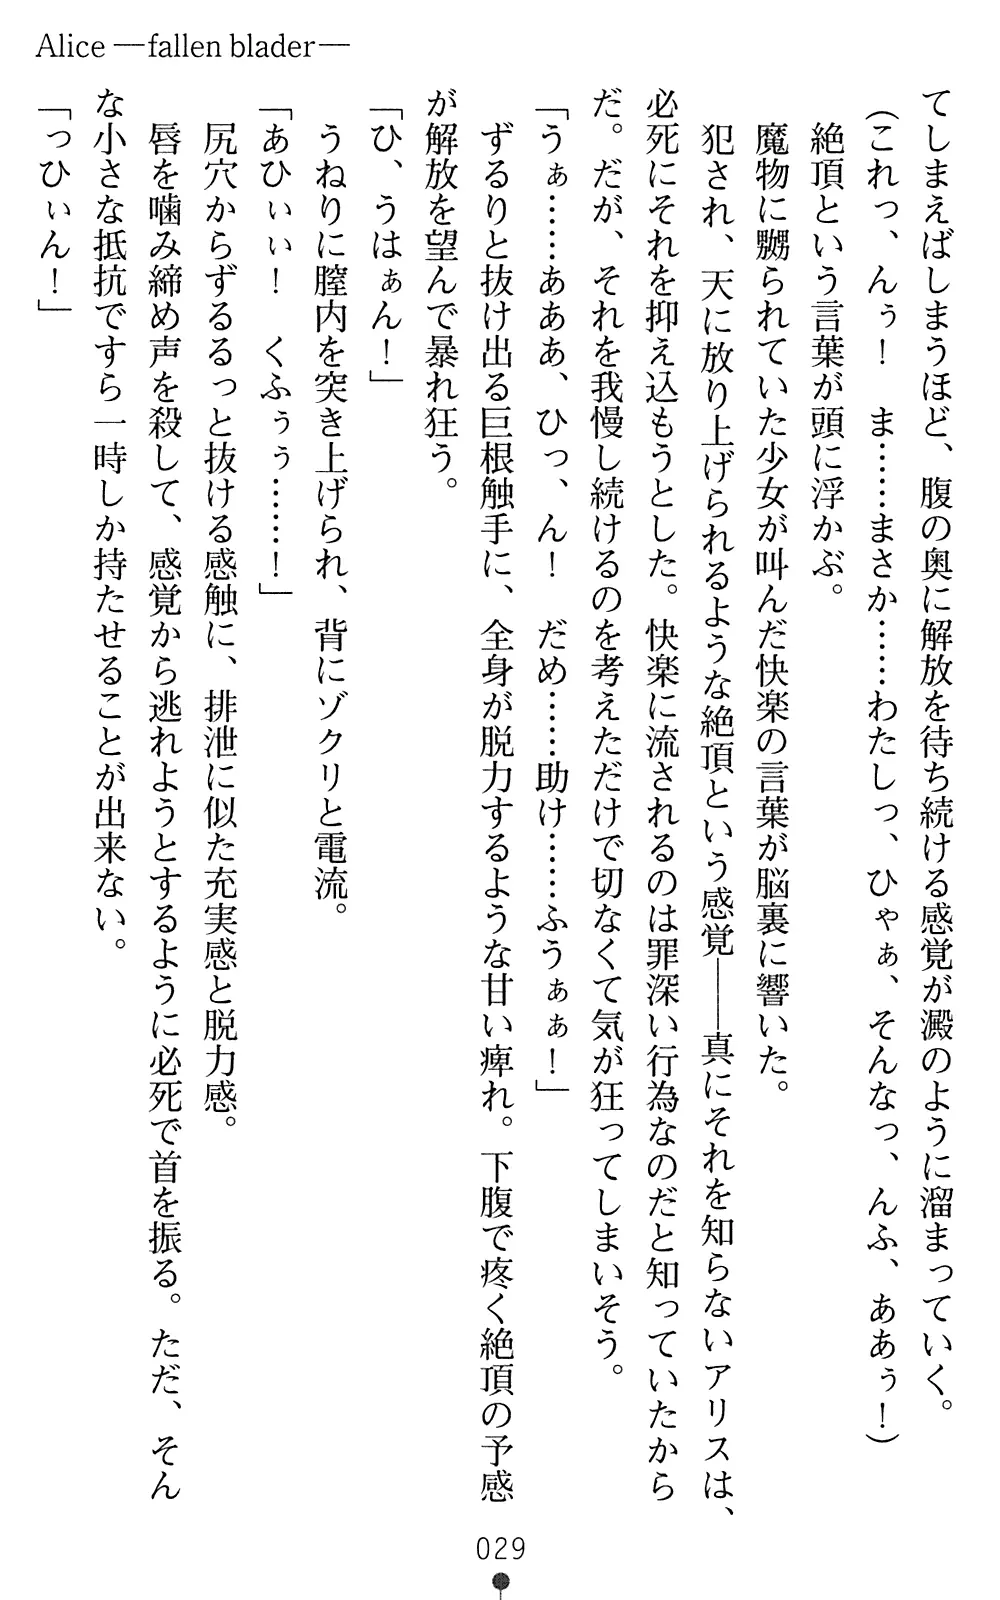 Alice ―fallen blader―
てしまえばしまうほど、腹の奥に解放を待ち続ける感覚が澱のように溜まっていく。
(これっ、んぅ！　ま……まさか……わたしっ、ひゃぁ、そんなっ、んふ、ああぅ！)
　絶頂という言葉が頭に浮かぶ。
　魔物に嬲られていた少女が叫んだ快楽の言葉が脳裏に響いた。
　犯され、天に放り上げられるような絶頂という感覚――真にそれを知らないアリスは、
必死にそれを抑え込もうとした。快楽に流されるのは罪深い行為なのだと知っていたから
だ。だが、それを我慢し続けるのを考えただけで切なくて気が狂ってしまいそう。
「うぁ……あああ、ひっ、ん！　だめ……助け……ふうぁぁ！」
　ずるりと抜け出る巨根触手に、全身が脱力するような甘い痺れ。下腹で疼く絶頂の予感
が解放を望んで暴れ狂う。
「ひ、うはぁん！」
　うねりに膣内を突き上げられ、背にゾクリと電流。
「あひぃぃ！　くふぅぅ……！」
　尻穴からずるるっと抜ける感触に、排泄に似た充実感と脱力感。
　唇を噛み締め声を殺して、感覚から逃れようとするように必死で首を振る。ただ、そん
な小さな抵抗ですら一時しか持たせることが出来ない。
「っひぃん！」
029